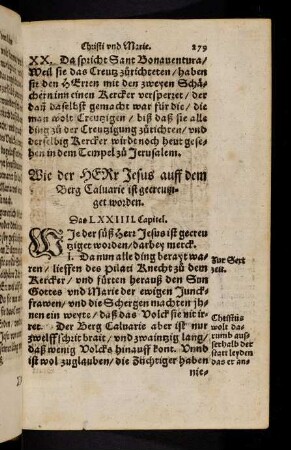 Christi vnd Marie. 279
XX. Da spricht Sant Bonauentura/
Weil sie das Creutz zürichteten/ haben
sie den HErren mit den zweyen Schä-
chern inn einen Kercker versperzet/ der
dañ daselbst gemacht war für die/ die
man wolt Creutzigen/ biß daß sie alle
ding zů der Creutzigung zürichten/ vnd
derselbig Kercker wirdt noch heut gese-
hen in dem Tempel zů Jerusalem.
Wie der HERr Jesus auff dem
Berg Caluarie ist gecreutzi-
get worden.
Das LXXIIII. Capitel.
WJe der süß Herr Jesus ist gecreu
tziget worden/ darbey merck.
I. Da nun alle ding berayt wa-
ren/ lieffen des Pilati Knecht zů dem
Kercker/ vnd fürten herauß den Sun
Gottes vnd Marie der ewigen Junck-
frawen/ vnd die Schergen machten jh-
nen ein weyte/ daß das Volck sie nit ir-
ret. Der Berg Caluarie aber ist nur
zwelff schrit brait/ vnd zwaintzig lang/
daß wenig Volcks hinauff kont. Vnnd
ist wol zuglauben/ die Züchtiger haben
nie-
Zur Sext
zeit.
Christus
wolt da-
rumb aus-
serhalb der
statt leyden
das er an-